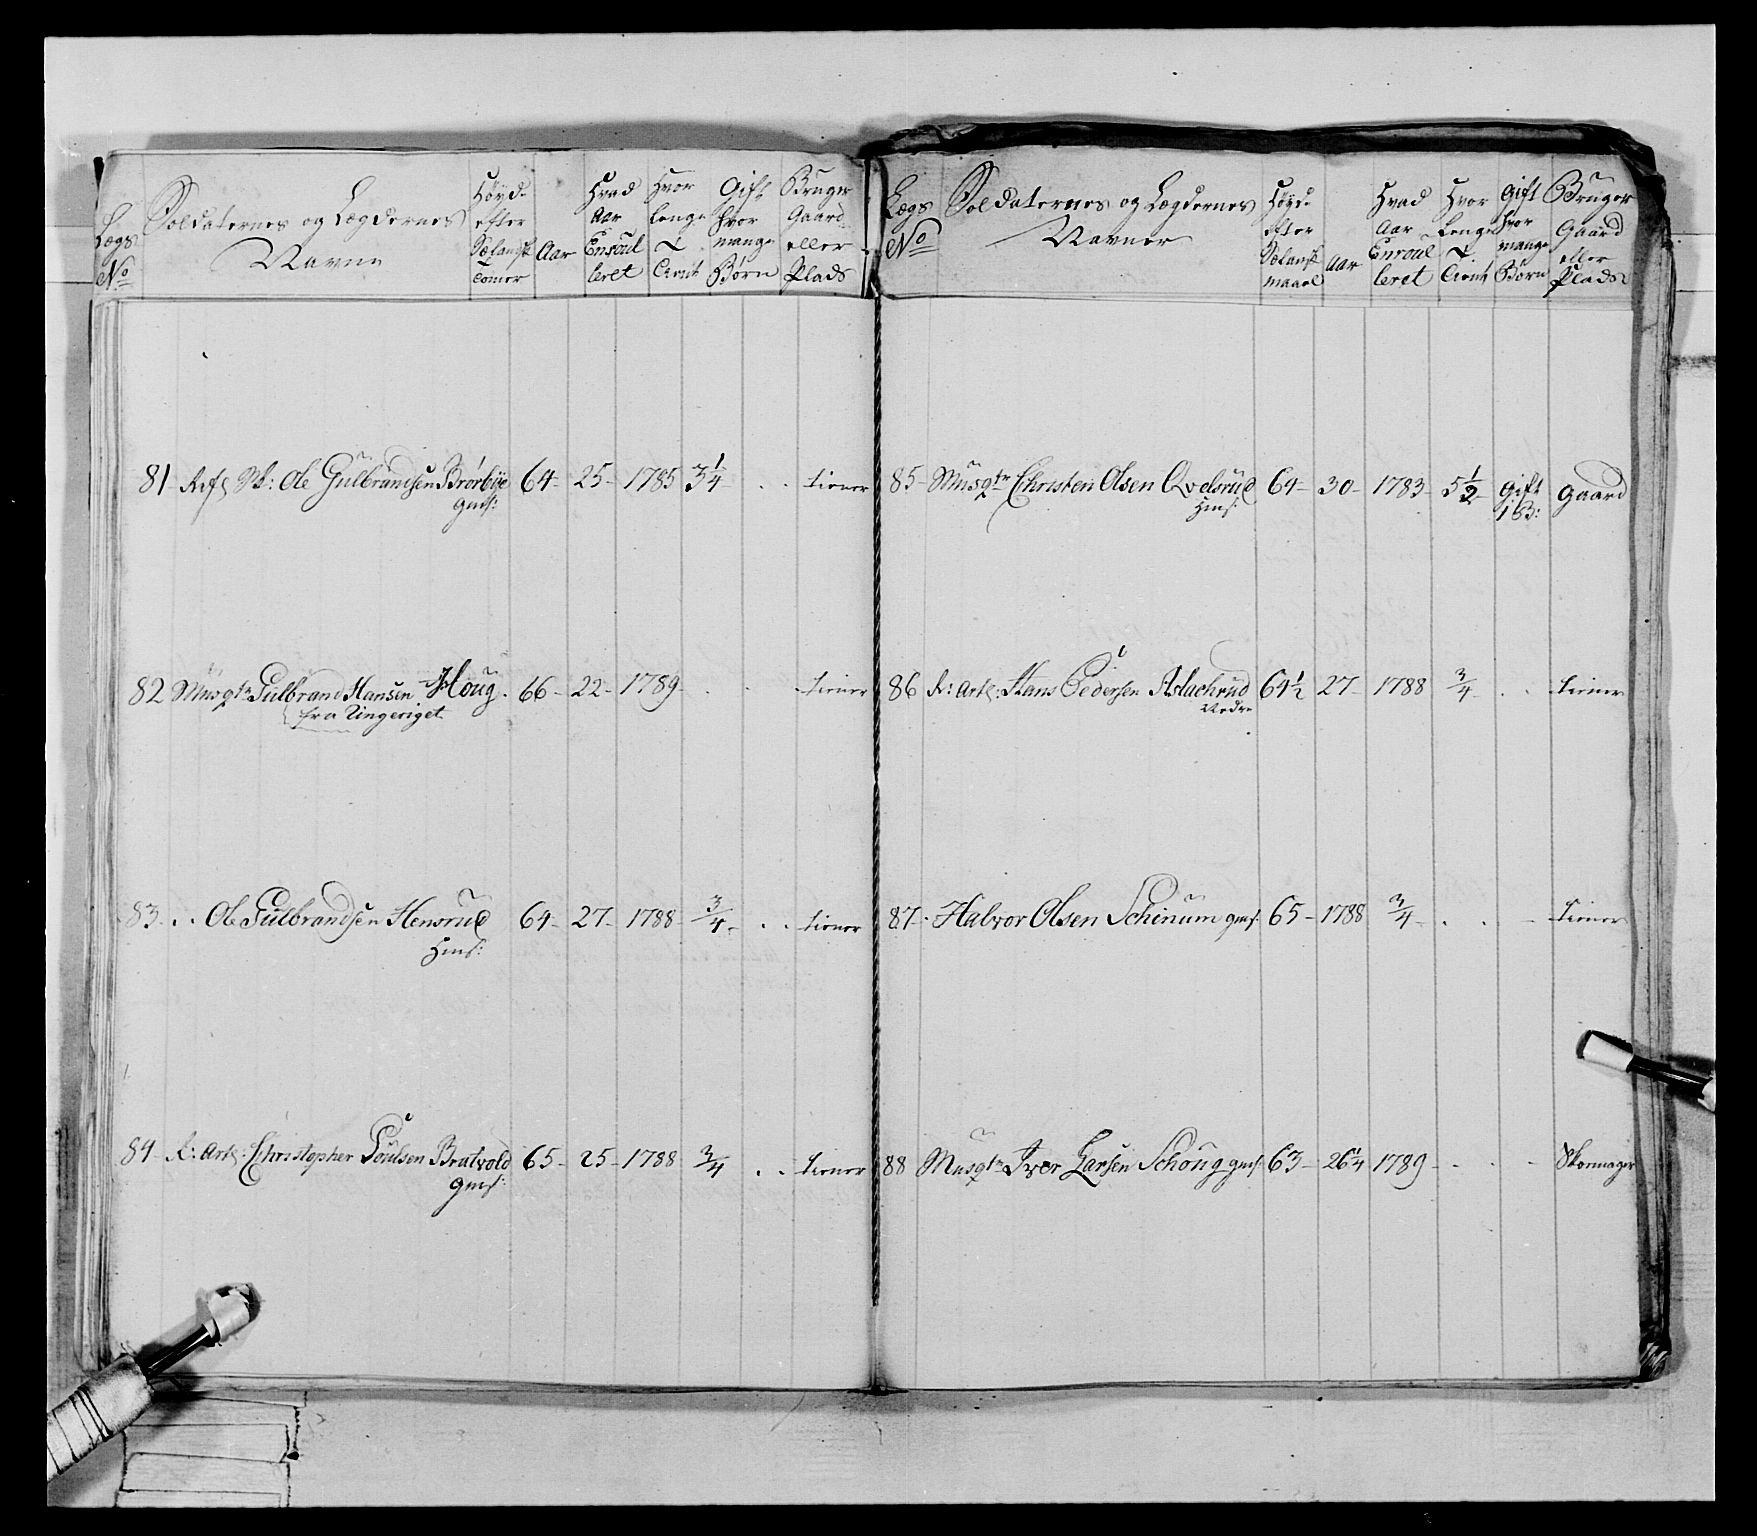 Lægs No
Soldaternes og Lægdernes Navne
Høyde efter Sælansk Tomer
Aar
Hvad Aar Enroulleret
Hvor lenge Tient
Gift hvor mange Børn
Bruger Gaard eller Plads
81 Ole Gulbrandsen Brørbye 64 25 1785 3 1/4 . . tiener
gms:
82 Musqtr Gulbrand Hansen Houg 66 22 1789 . . tiener
fra Ringeriget
83 . . Ole Gulbrandsen Hensrud 64 27 1788 3/4 . . tiener
Hms:
84 R: Art: Christopher Poulsen Bratvold 65 25 1788 3/4 . . tiener
gms:
Lægs No
Soldaternes og Lægdernes Navner
Høyde efter Sælansk maael
Aar
Hvad Aar Enroulleret
Hvor Lenge Tient
Gift hvor mange Børn
Bruger Gaard eller Plads
85 Musqtr Christen Olsen Qvelsrud 64 30 1783 5 1/2 Gift Gaard
Hms: 1 B:
86 R: Art: Hans Pedersen Aslachrud 64 1/2 27 1788 3/4 . . tiener
Nedre
87 Halvor Olsen Schinum gms: 65 1788 3/4 . . tiener
88 Musqtr Iver Larsen Schoug gms: 63 26 1/4 1789 . . Skomager